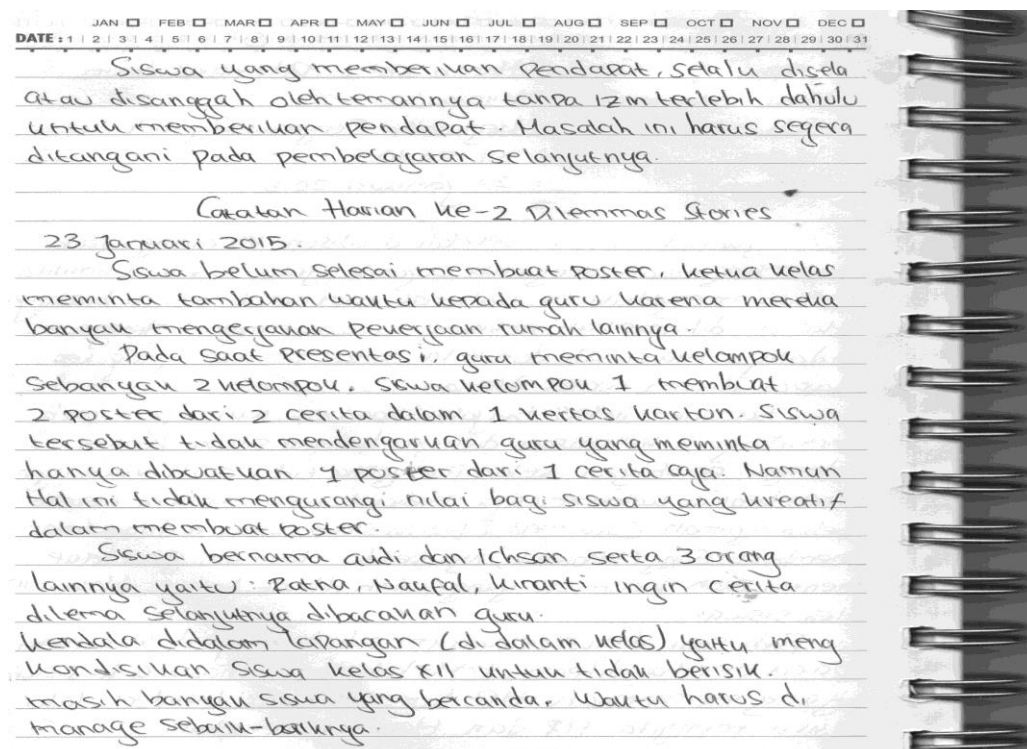 JAN FEB MAR APR MAY JUN JUL AUG SEP OCT NOV DEC
DATE : 1 2 3 4 5 6 7 8 9 10 11 12 13 14 15 16 17 18 19 20 21 22 23 24 25 26 27 28 29 30 31
Siswa yang memberikan pendapat, selalu disela
atau disanggah oleh temannya tanpa izin terlebih dahulu
untuk memberikan pendapat. Masalah ini harus segera
ditangani pada pembelajaran selanjutnya.
Catatan Harian ke-2 Dilemmas Stories
23 Januari 2015.
Siswa belum selesai membuat poster, ketua kelas
meminta tambahan waktu kepada guru karena mereka
banyak mengerjakan pekerjaan rumah lainnya.
Pada saat presentasi, guru meminta kelompok
sebanyak 2 kelompok. Siswa kelompok 1 membuat
2 poster dari 2 cerita dalam 1 kertas karton. Siswa
tersebut tidak mendengarkan guru yang meminta
hanya dibuatkan 1 poster dari 1 cerita saja. Namun
Hal ini tidak mengurangi nilai bagi siswa yang kreatif
dalam membuat poster.
Siswa bernama audi dan Ichsan serta 3 orang
lainnya yaitu : Ratna, Naufal, Kinanti ingin cerita
dilema selanjutnya dibacakan guru.
Kendala didalam lapangan (di dalam kelas) yaitu meng
kondisikan siswa kelas XII untuk tidak berisik.
masih banyak siswa yang bercanda. Waktu harus di
manage sebaik-baiknya.